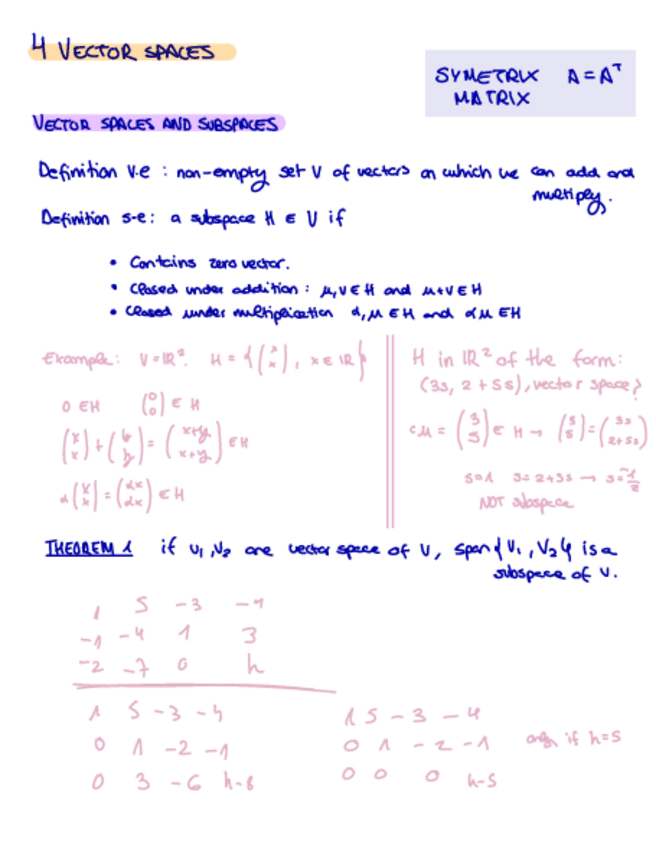 4 VECTOR SPACES
SYMETRIX A = Aᵀ
MATRIX
VECTOR SPACES AND SUBSPACES
Definition v.e : non-empty set V of vectors on which we can add and
multiply.
Definition s-e: a subspace H ∈ V if
• Contains zero vector.
• Closed under addition : μ, v ∈ H and μ+v ∈ H
• Closed under multiplication α, μ ∈ H and αμ ∈ H
Example: V = ℝ². H = {(x x), x ∈ ℝ}
0 ∈ H (0 0) ∈ H
(x x) + (y y) = (x+y x+y) ∈ H
α(x x) = (αx αx) ∈ H
H in ℝ² of the form:
(3s, 2 + 5s), vector space?
cμ = (3 5) ∈ H → (5 5) = (3s 2+5s)
s=1 3=2+3s → s=-1/2
NOT subspace
THEOREM 1 if v₁, v₂ are vector space of V, span{v₁, v₂} is a
subspace of V.
1 5 -3 -4
-1 -4 1 3
-2 -7 0 h
1 5 -3 -4
0 1 -2 -1
0 3 -6 h-8
1 5 -3 -4
0 1 -2 -1 only if h=5
0 0 0 h-5